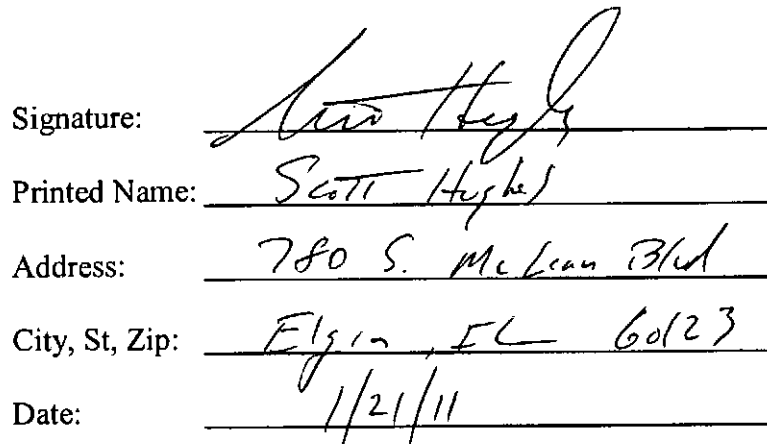 Signature: Scott Hughes
Printed Name: Scott Hughes
Address: 780 S. McLean Blvd
City, St, Zip: Elgin, IL 60123
Date: 1/21/11